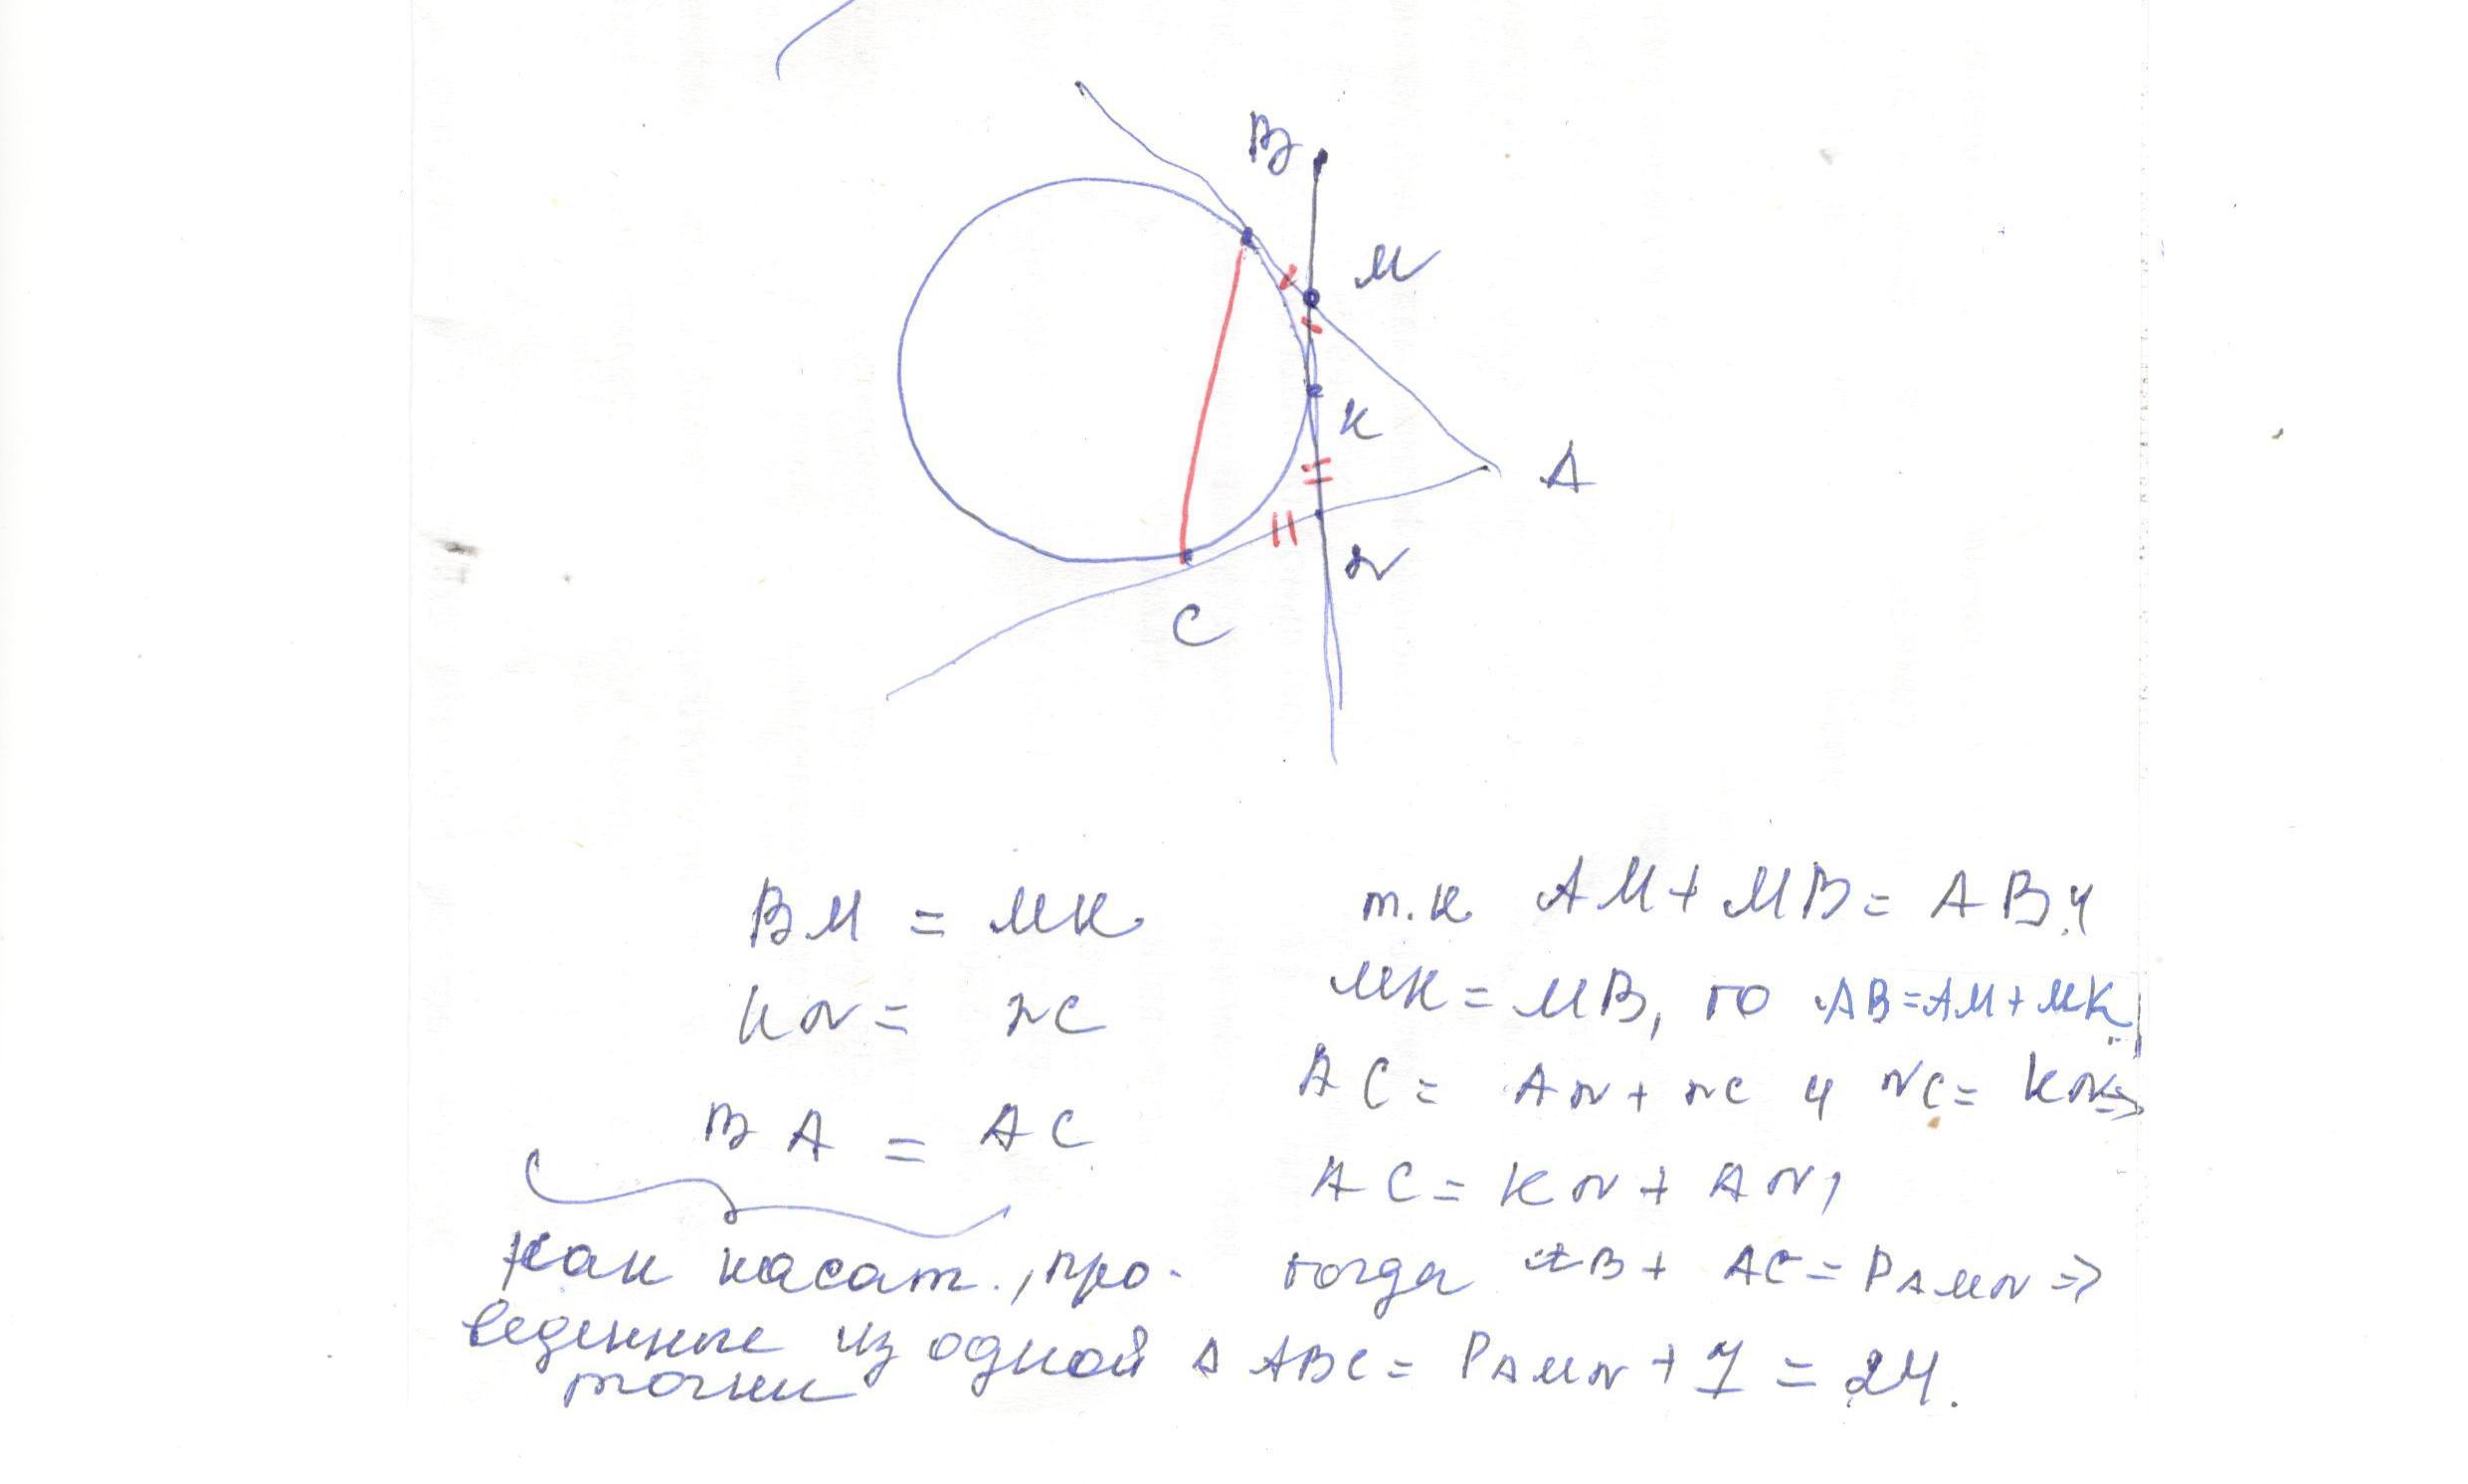 В
М
К
А
N
С
BM = MK
KN = NC
BA = AC
как касат., про-
веденные из одной
точки
т.к AM + MB = AB и
MK = MB, то AB = AM + MK
AC = AN + NC и NC = KN ⇒
AC = KN + AN,
тогда AB + AC = P AMN ⇒
Δ ABC = P AMN + 7 = 24.